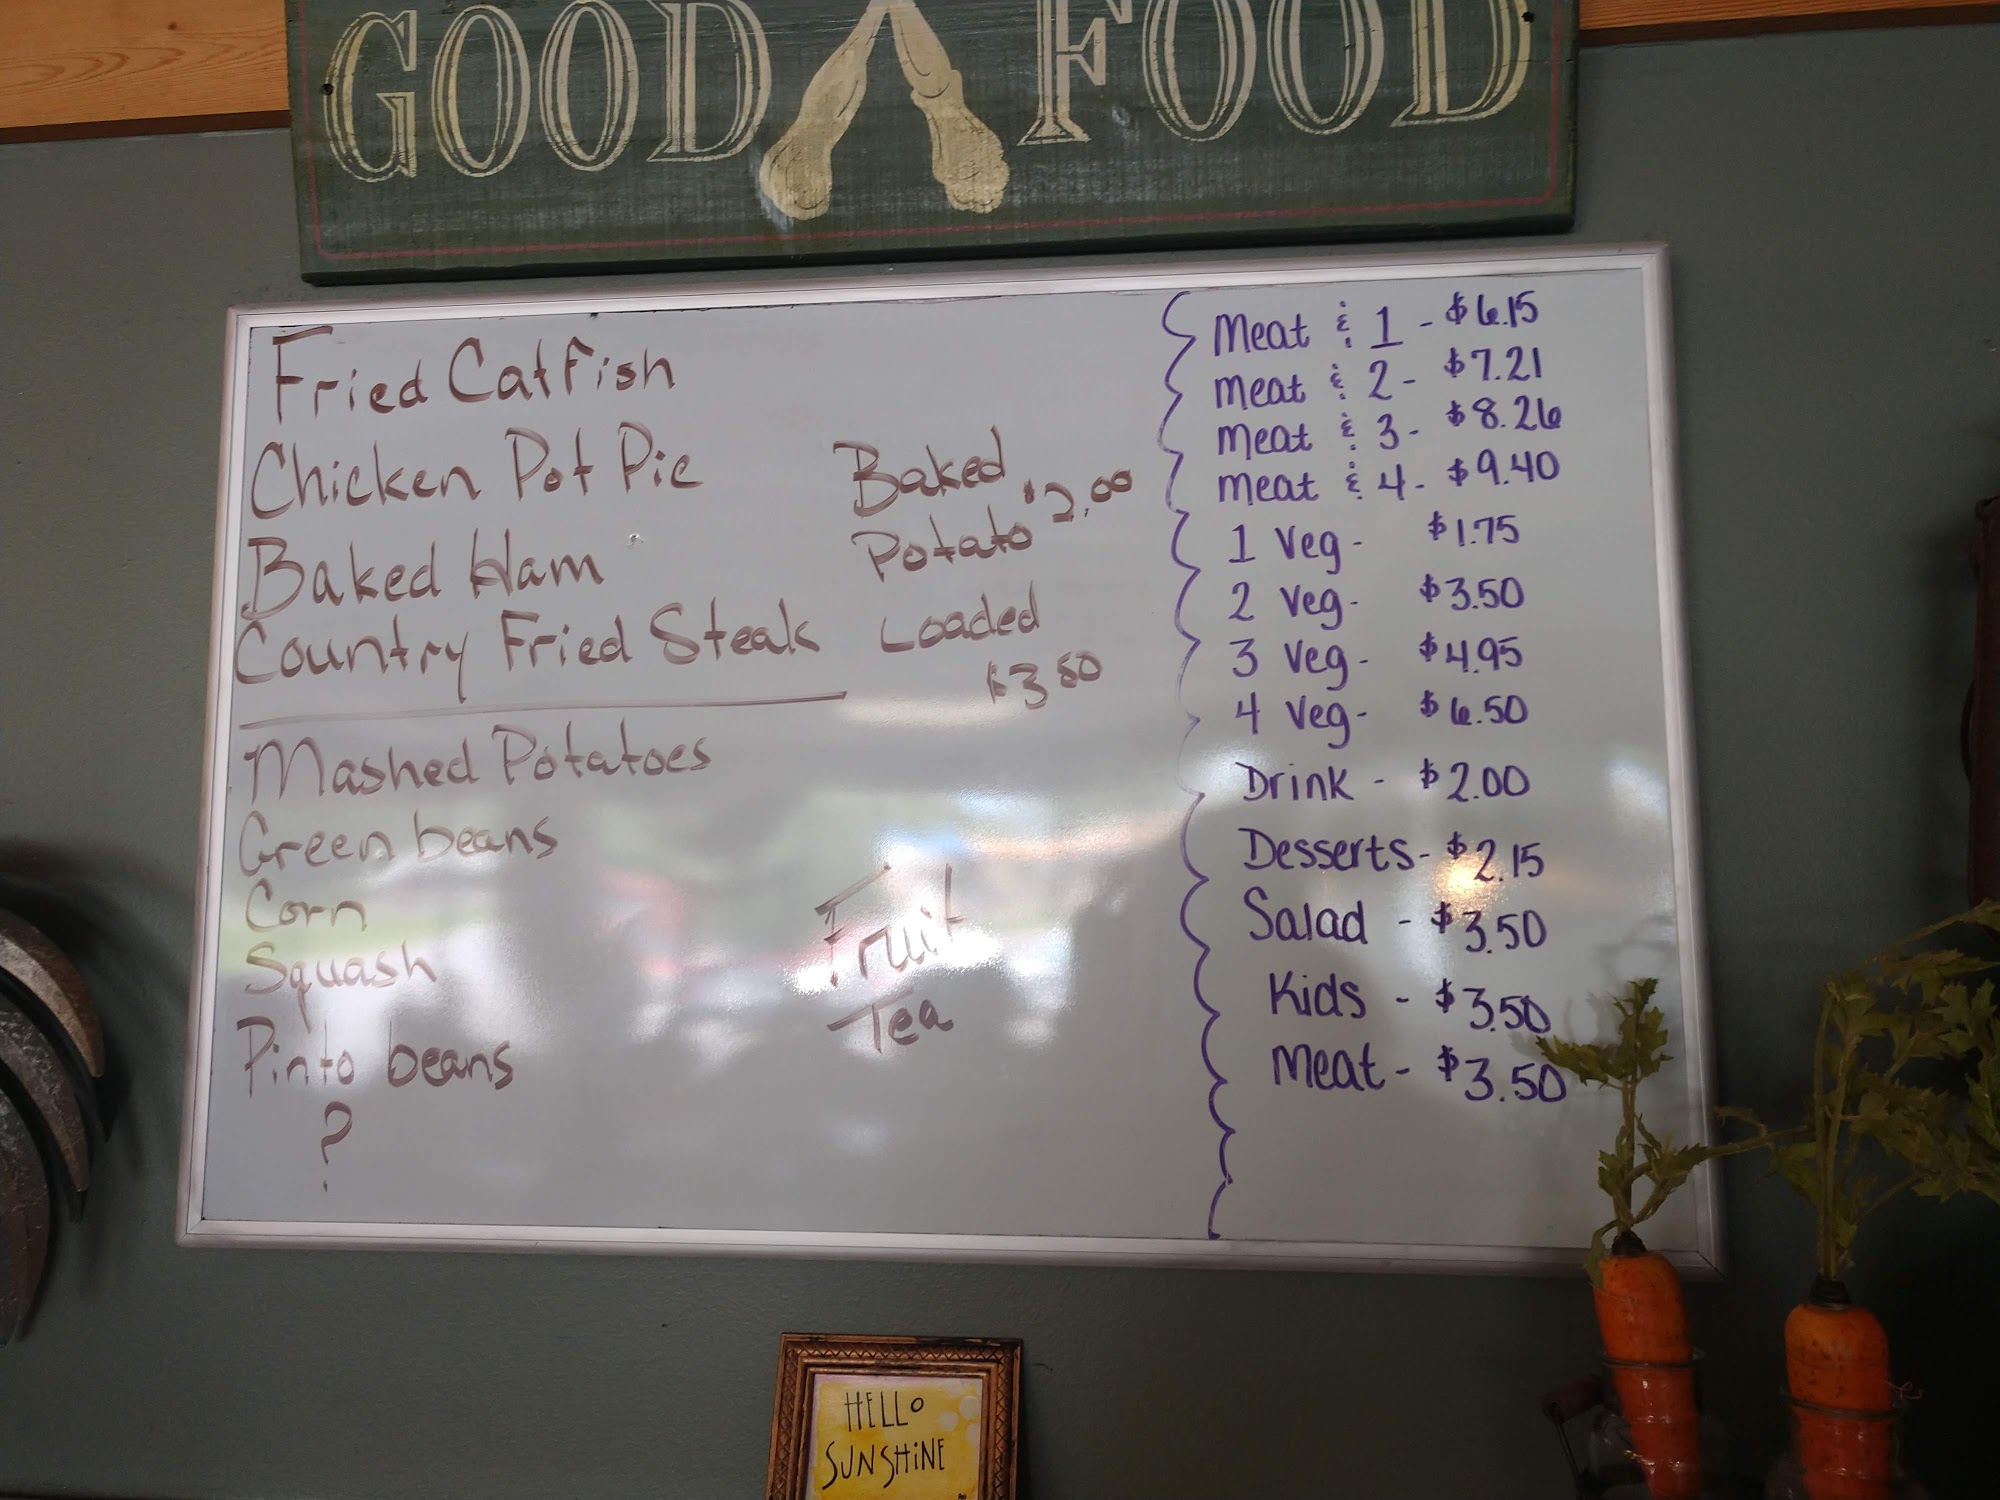 GOOD FOOD
Fried Catfish
Chicken Pot Pie
Baked Ham
Country Fried Steak
Mashed Potatoes
Green beans
Corn
Squash
Pinto beans
?
Baked
Potato $2.00
Loaded
$3.50
Fruit
Tea
Meat & 1 - $6.15
Meat & 2 - $7.21
Meat & 3 - $8.26
Meat & 4 - $9.40
1 Veg - $1.75
2 Veg - $3.50
3 Veg - $4.95
4 Veg - $6.50
Drink - $2.00
Desserts - $2.15
Salad - $3.50
Kids - $3.50
Meat - $3.50
HELLO
SUNSHINE